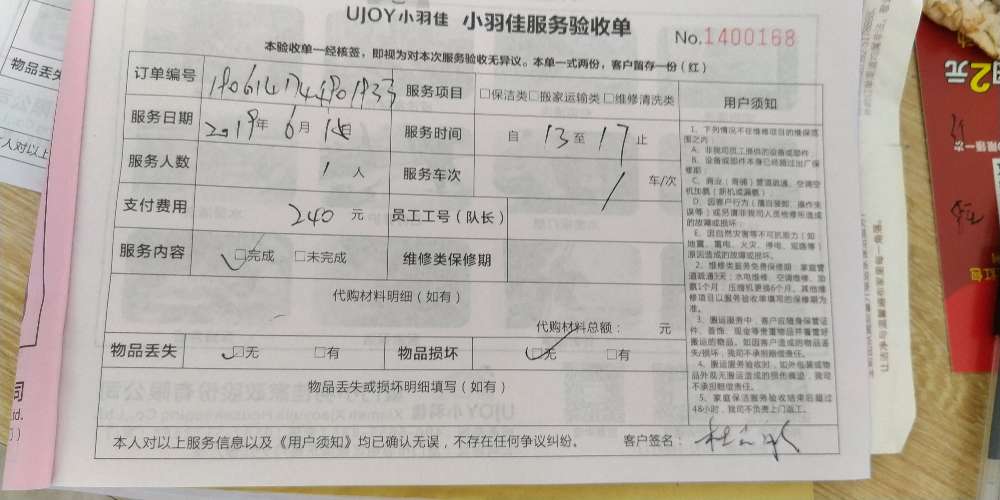 UJOY小羽佳 小羽佳服务验收单
No.1400168
本验收单一经核签，即视为对本次服务验收无异议。本单一式两份，客户留存一份（红）
订单编号 服务项目 □保洁类□搬家运输类□维修清洗类
服务日期 2019年6月 日 服务时间 自 13 至 17 止
服务人数 1 人 服务车次 / 车/次
支付费用 240 元 员工工号（队长）
服务内容 □完成 □未完成 维修类保修期
代购材料明细（如有）
代购材料总额： 元
物品丢失 □无 □有 物品损坏 □无 □有
物品丢失或损坏明细填写（如有）
本人对以上服务信息以及《用户须知》均已确认无误，不存在任何争议纠纷。 客户签名：
用户须知
1、下列情况不在维修项目的维保范
围之内：
A、非我司员工提供的设备或部件
B、设备或部件本身已经超过出厂保
修期：
C、商业（商铺）管道疏通、空调空
机加氟（新机或漏氟）
D、因客户行为（擅自装卸、操作失
误等）或另请非我司人员维修所造成
的故障或损坏：
E、因自然灾害等不可抗能力（如：
地震、雷电、火灾、停电、短路等）
原因造成的故障或损坏。
2、维修类服务免费保修期：家庭管
道疏通3天；水电维修、空调维修、加
氟1个月；压缩机更换6个月。其他维
修项目以服务验收单填写的保修期为
准。
3、搬运服务中，客户应随身保管证
件、首饰、现金等贵重物品并看管好
搬运的物品。如因客户造成的物品丢
失/损坏，我司不承担赔偿责任。
4、搬运服务验收时，如外包装或物
品外观无搬运造成的损伤痕迹，我司
不承担赔偿责任。
5、家庭保洁服务验收结束后超过
48小时，我司不负责上门返工。
物品丢失
2元